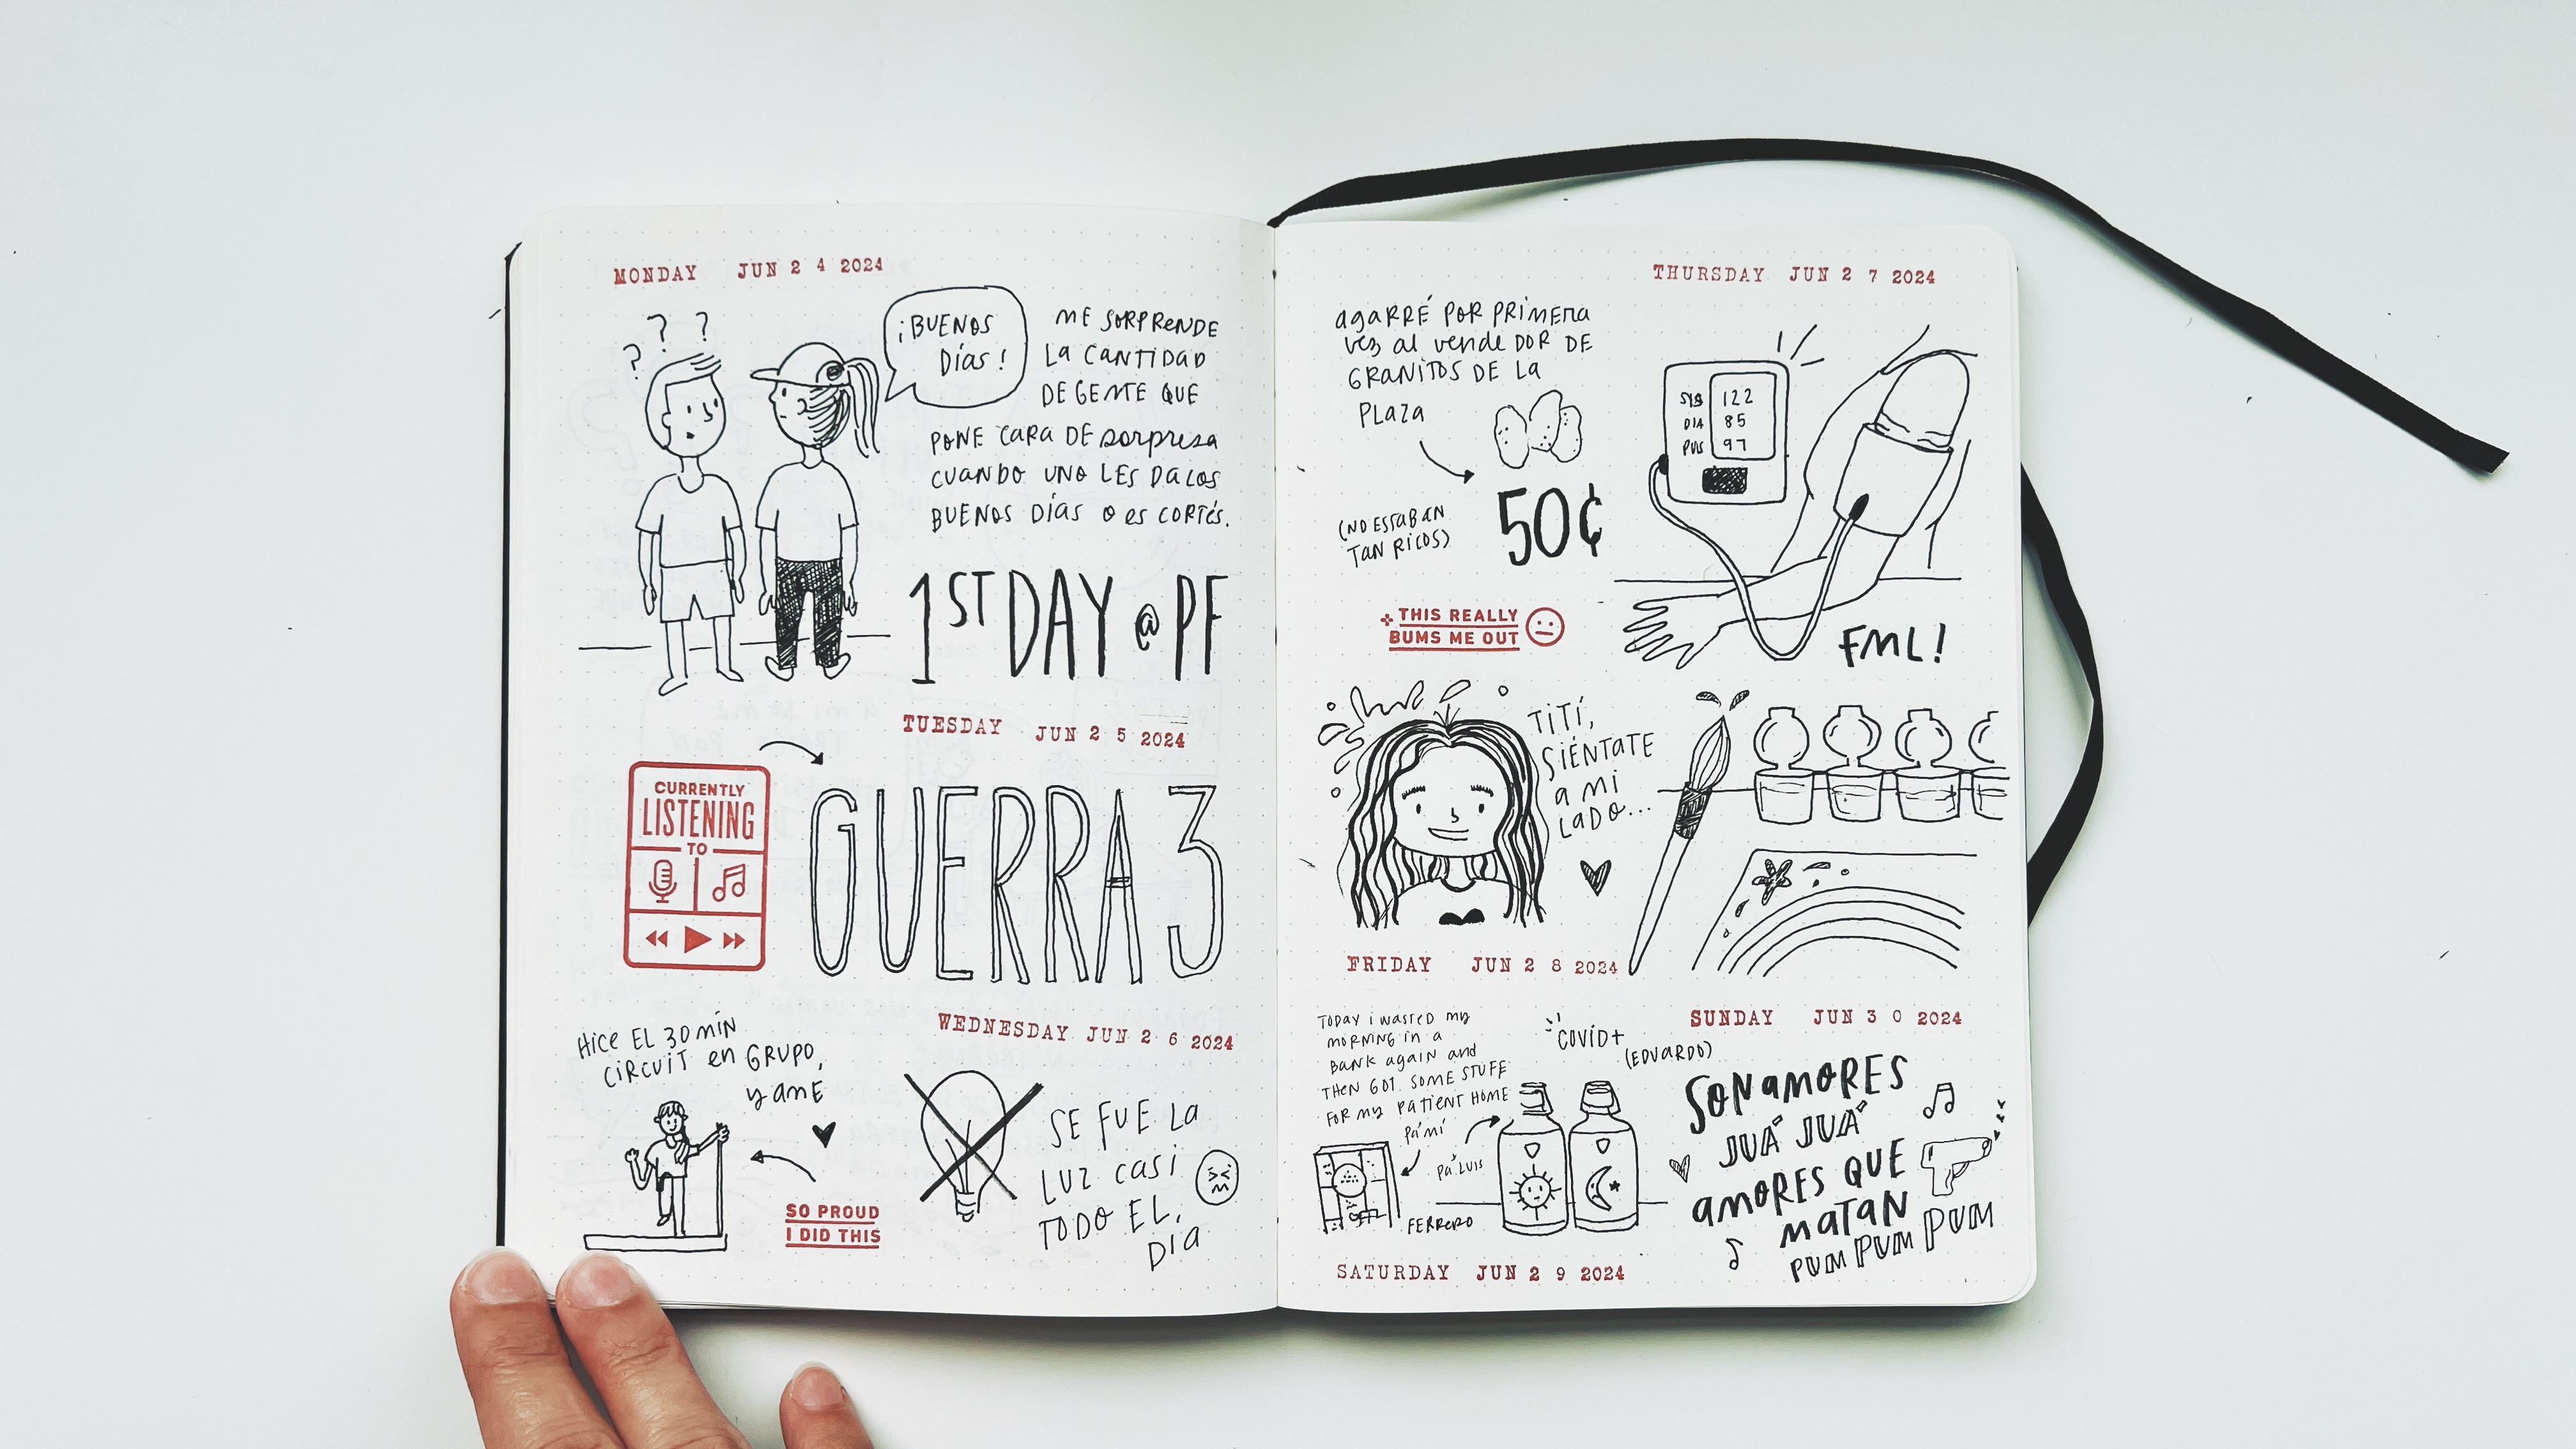 MONDAY JUN 2 4 2024
? ? ?
¡BUENOS
DÍAS!
ME SORPRENDE
LA CANTIDAD
DE GENTE QUE
PONE CARA DE sorpresa
CUANDO UNO LES DA LOS
BUENOS DÍAS O ES CORTÉS.
1ST DAY @ PF
TUESDAY JUN 2 5 2024
CURRENTLY
LISTENING
TO
GUERRA 3
WEDNESDAY JUN 2 6 2024
HICE EL 30 MÍN
CIRCUIT en GRUPO,
y amé
SO PROUD
I DID THIS
SE FUE LA
LUZ casi
TODO EL
DIA
THURSDAY JUN 2 7 2024
agarré POR PRIMERA
vez al vendedor DE
GRANITOS DE LA
PLAZA
50¢
(NO ESTABAN
TAN RICOS)
SYS 122
DIA 85
PUS 97
THIS REALLY
BUMS ME OUT
FML!
TITÍ,
SIÉNTATE
a mi
LADO...
FRIDAY JUN 2 8 2024
TODAY i wasted my
MORNING in a
BANK again and
THEN GOT SOME STUFF
FOR my PATIENT HOME
PA' MÍ
PA' LUIS
FERRERO
COVID+
(EDUARDO)
SATURDAY JUN 2 9 2024
SUNDAY JUN 3 0 2024
SON AMORES
JUÁ JUÁ
AMORES QUE
MATAN
PUM PUM PUM